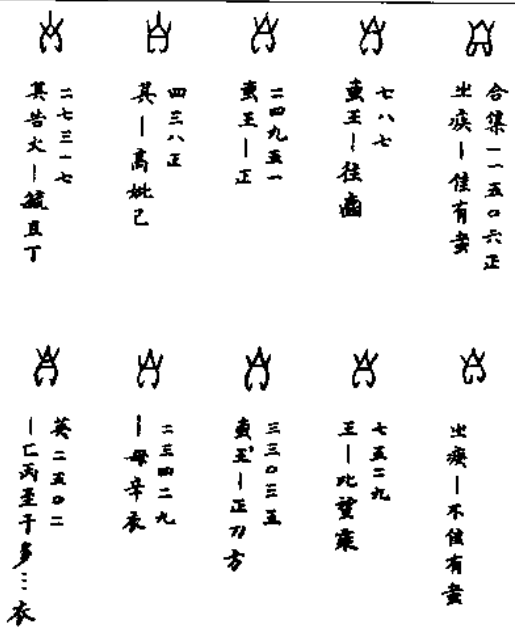 合集一一五〇六正
㞢疾丨隹有𧉘
七八七
叀王丨往
二四九五一
叀王丨正
四三八正
其丨高妣己
二七三一七
其告火丨毓且丁
㞢疾丨不隹有𧉘
七五二九
王丨比望乘
三三〇三五
叀王丨正刀方
二三四二九
丨母辛衣
英二五〇二
丨亡丙至于多…衣